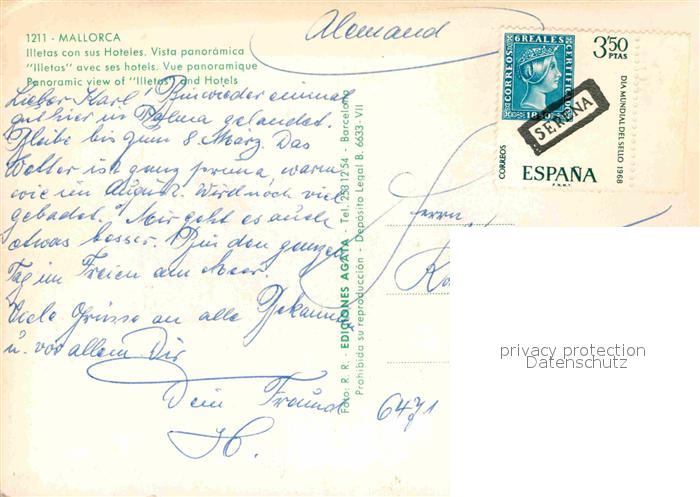 1211 - MALLORCA
Illetas con sus Hoteles. Vista panorámica
"Illetas" avec ses hotels. Vue panoramique
Panoramic view of "Illetas" and Hotels
Alemand
Lieber Karl! Bin wieder einmal
gut hier in Palma gelandet.
Bleibe bis zum 8. März. Das
Wetter ist ganz prima, warm
wie im August. Wird noch viel
gebadet. Mir geht es auch
etwas besser. Bin den ganzen
Tag im Freien am Meer.
Viele Grüsse an alle Bekannte
u. vor allem Dir
Dein Freund
Foto: R. R. - EDICIONES AGATA - Tel. 253 12 54 - Barcelona
Prohibida su reproducción - Depósito Legal B. 6633 - VII
6 REALES
CORREOS
CERTIFICADO
1850
3'50 PTAS
SERENA
CORREOS
ESPAÑA
F.N.M.T.
DIA MUNDIAL DEL SELLO 1968
Herrn
6471
privacy protection
Datenschutz